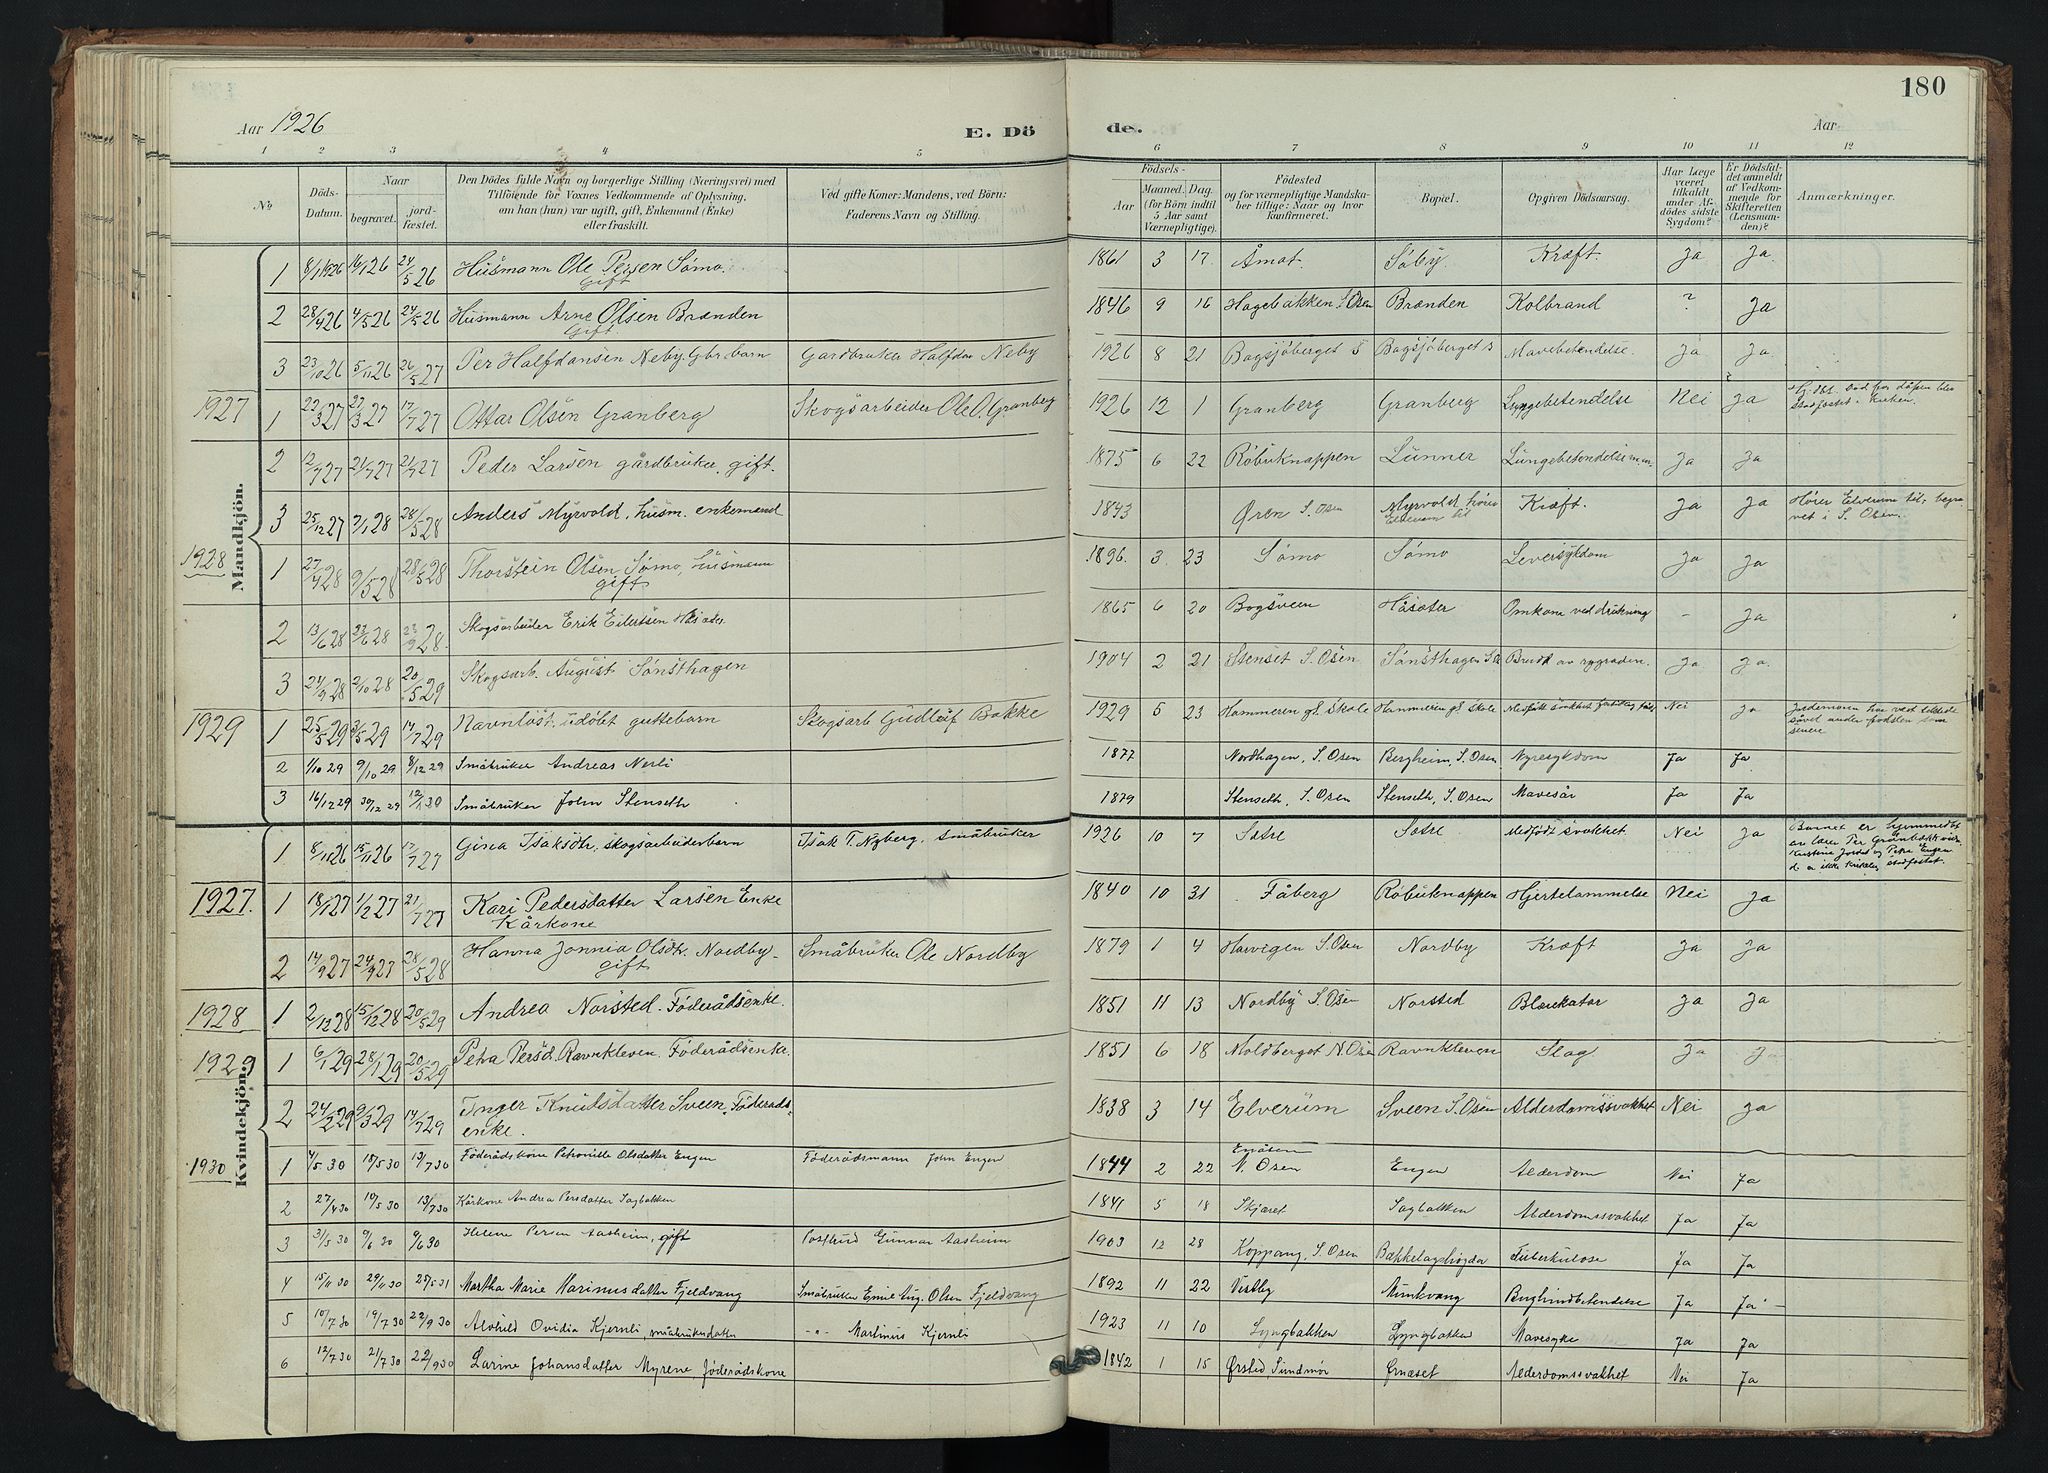 180
Aar 1926 E. Dö de. Aar
1 2 3 4 5 6 7 8 9 10 11 12
No Döds-Datum. Naar begravet. jord-fæstet. Den Dödes fulde Navn og borgerlige Stilling (Næringsvei) med Tilföiende for Voxnes Vedkommende af Oplysning, om han (hun) var ugift, gift, Enkemand (Enke) eller fraskilt. Ved gifte Koner: Mandens, ved Börn: Faderens Navn og Stilling. Födsels- Aar Maaned. Dag. (for Börn indtil 5 Aar samt Værnepligtige). Födested og for værnepligtige Mandska-ber tillige: Naar og hvor konfirmeret. Bopæl. Opgiven Dödsaarsag. Har Læge været tilkaldt under Af-dödes sidste Sygdom? Er Dödsfal-det anmeldt af Vedkom-mende for Skifteretten (Lensman-den)? Anmærkninger.
Mandkjön.
1 8/1 1926 16/1 26 24/5 26 Husmann Ole Persen Sømo. gift 1861 3 17 Åmot Søby. Kræft. Ja Ja.
2 28/4 26 4/5 26 24/5 26 Husmann Arne Olsen Brænden Gift. 1846 9 16 Hagebakken S. Osen Brænden Kolbrand ? Ja
3 23/10 26 5/11 26 26/5 27 Per Halfdansen Neby. Gbr. barn Gardbruker Halfdan Neby 1926 8 21 Bagsjøberget S Bagsjøberget S Mavebetendelse. Ja Ja.
1927 1 22/3 27 27/3 27 17/7 27 Ottar Olsen Granberg Skogsarbeider Ole O. Granberg 1926 12 1 Granberg Granberg Lungebetendelse Nei Ja
2 12/7 27 21/7 27 21/7 27 Peder Larsen gårdbruker, gift. 1875 6 22 Røbuknappen Lunner Lungebetendelse m.m. Ja Ja
3 25/12 27 7/1 28 28/5 28 Anders Myrvold, husm. enkemand 1843 Øren S. Osen Myrvold, hører Elverum til Kræft. Ja Ja Hører Elverum til, begra vet i S. Osen.
1928 1 27/4 28 9/5 28 28/5 28 Thorstein Olsen Sømo, husmann gift 1896. 3 23 Sømo Sømo Leversykdom Ja Ja
2 13/6 28 22/6 28 23/9 28. Skogsarbeider Erik Eilertsen Håsæter 1865 6 20 Bogsveen Håsæter Omkom ved drukning - Ja
3 24/9 28 2/10 28 20/5 29 Skogsarb. August Sønsthagen 1904 2 21 Stenset S. Osen Sønsthagen Brudd av rygraden. Ja Ja.
1929 1 25/5 29 31/5 29 14/7 29 Navnløst. udøbt guttebarn Skogsarb Gudleif Bakke 1929 5 23 Hammeren gl. skole Hammeren gl. skole Nei Ja
2 1/10 29 9/10 29 8/12 29 Småbruker Andreas Nerli 1877 Nordhagen, S. Osen Bergheim, S. Osen Nyresykdom Ja Ja
3 16/12 29 30/12 29 12/1 30 Småbruker John Stenseth 1879 Stenseth, S. Osen Stenseth, S. Osen Mavesår Ja Ja
Kvindekjön.
1 8/11 26 15/11 26 17/7 27 Gina Isaksdtr. skogsarbeiderbarn Isak T. Nyberg, småbruker 1926 10 7 Sætre Sætre Medfødt svakhet. Nei Ja Barnet er hjemmedøbt av lærer Per Grønbekk
1927. 1 18/1 27 1/2 27 21/7 27 Kari Pedersdatter Larsen Enke Kårkone 1840 10 31 Fåberg Røbuknappen Hjertelammelse Nei Ja
2 14/9 27 24/9 27 28/5 28 Hanna Jonnia Olsdtr. Nordby - gift Småbruker Ole Nordby 1879 1 4 Havigen S. Osen Nordby Kræft Ja Ja
1928 1 2/12 28 15/12 28 20/5 29 Andrea Norsted. Føderådsenke. 1851 11 13 Nordby S. Osen Norsted Blærekatar Ja Ja
1929 1 6/1 29 28/1 29 20/5 29 Petra Persd. Ravnkleven. Føderådsenke. 1851 6 18 Moldberget N. Osen Ravnkleven Slag Ja Ja
2 24/2 29 9/3 29 14/7 29 Inger Knutsdatter Sveen, Føderads-enke. 1838 3 14 Elverum Sveen S. Osen Alderdomssvakhet Nei Ja
1930 1 4/5 30 18/5 30 13/7 30 Føderådskone Petronille Olsdatter Engen Føderådsmann John Engen 1844 2 22 N. Osen Engen Alderdom Nei Ja
2 27/4 30 10/5 30 13/7 30 Kårkone Andrea Persdatter Sagbakken 1841 5 18 Skjæret Sagbakken Alderdomssvakhet Ja Ja
3 31/5 30 9/6 30 9/6 30 Helene Persen Aasheim, gift Postbud Gunnar Aasheim 1903 12 28 Koppang, S. Osen Bækkelagshøgda Tuberkulose Ja Ja
4 15/11 30 29/11 30 25/5 31 Martha Marie Marinusdatter Fjeldvang Småbruker Emil Aug. Olsen Fjeldvang 1892 11 22 Vestby Munkvang Bughindbetendelse Ja Ja -
5 10/7 30 19/7 30 22/9 30 Alvhild Ovidia Kjernli, småbrukerdatter -"- Martinius Kjernli 1923 11 10 Lyngbakken Lyngbakken Mavesyke Ja Ja
6 12/7 30 21/7 30 22/9 30 Larine Johansdatter Myrene, føderådskone 1842 1 15 Ørsted, Sundmør Ørnæset Alderdomssvakhet Nei Ja